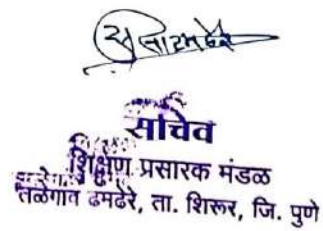 सचिव
शिक्षण प्रसारक मंडळ
तळेगाव ढमढेरे, ता. शिरूर, जि. पुणे